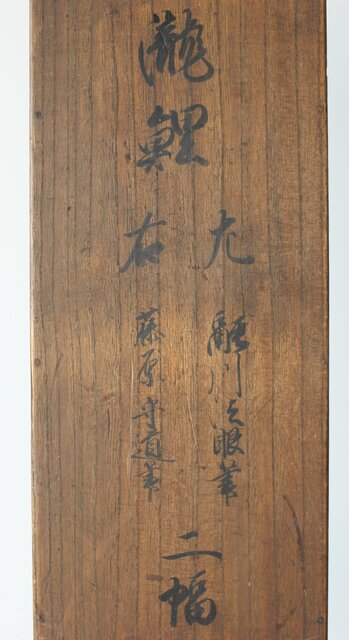 瀧鯉
左 融川法眼筆
右 藤原守道筆
二幅